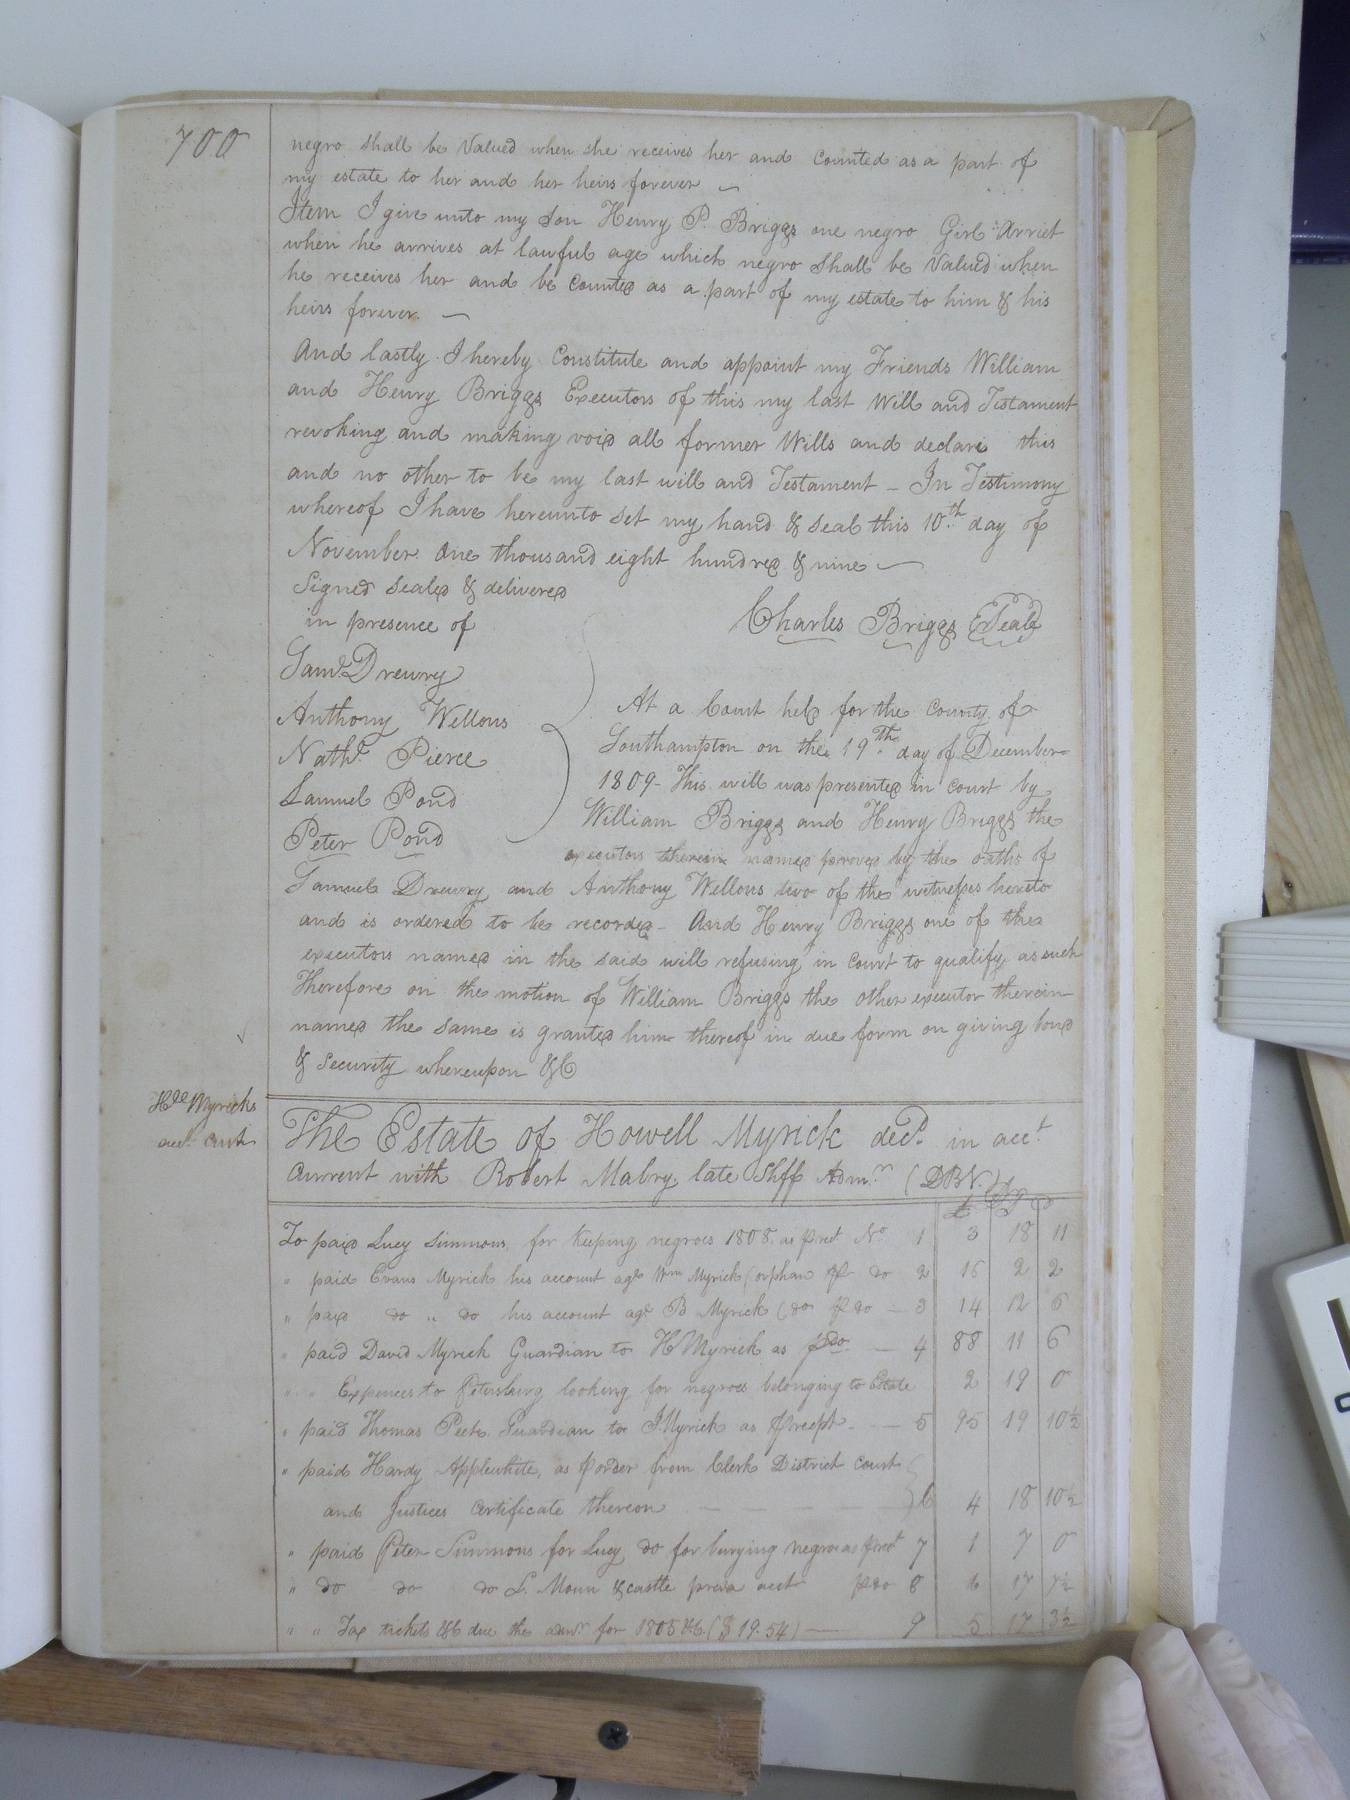 700
negro shall be Valued when she receives her and Counted as a part of
my estate to her and her heirs forever
Item I give unto my Son Henry P. Briggs one negro Girl Arriet
when he arrives at lawful age which negro shall be Valued when
he receives her and be Counted as a part of my estate to him & his
heirs forever.
And lastly I hereby Constitute and appoint my Friends William
and Henry Briggs Executors of this my last Will and Testament
revoking and making void all former Wills and declare this
and no other to be my last will and Testament - In Testimony
whereof I have hereunto set my hand & seal this 10th day of
November One thousand eight hundred & nine
Signed Sealed & delivered
in presence of
Charles Briggs Seal
Saml Drewry
Anthony Wellons
Nathl Pierce
Samuel Pond
Peter Pond
At a Court held for the County of
Southampton on the 19th day of December
1809 - This will was presented in Court by
William Briggs and Henry Briggs the
executors therein named proved by the oaths of
Samuel Drewry and Anthony Wellons two of the witnesses hereto
and is ordered to be recorded - And Henry Briggs one of the
executors named in the said will refusing in Court to qualify as such
Therefore on the motion of William Briggs the other executor therein
named the same is granted him thereof in due form on giving bond
& Security whereupon &C
Hll Myricks
acct Curt
The Estate of Howell Myrick decd. in acct.
Current with Robert Mabry late Shff Admr. (DBN.)
£ S D
To paid Lucy Simmons for keeping negroes 1808 as pret No 1 3 18 11
" paid Evans Myrick his account agt Wm Myrick (orphan p do 2 16 2 2
" paid do " do his account agt B Myrick (do p do - 3 14 12 6
" paid David Myrick Guardian to H Myrick as pdo - 4 88 11 6
" " Expences to Petersburg looking for negroes belonging to Estate 2 19 0
" paid Thomas Peete Guardian to J Myrick as preceipt - 5 95 19 10½
" paid Hardy Applewhite, as p order from Clerk District Court
and Justices Certificate thereon 6 4 18 10½
" paid Peter Simmons for Lucy do for burying negroes as pret 7 1 7 0
" do do do L. Mounn & castle acct pdo 8 6 17 7½
" " Tax tickets &C due the for 1805 &C ($19.54) 9 5 17 3½